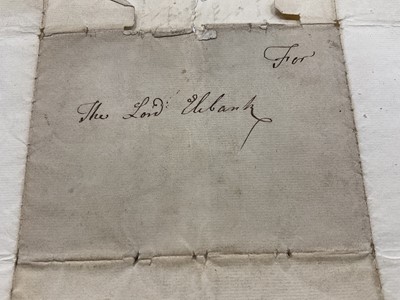 For
The Lord Elibank